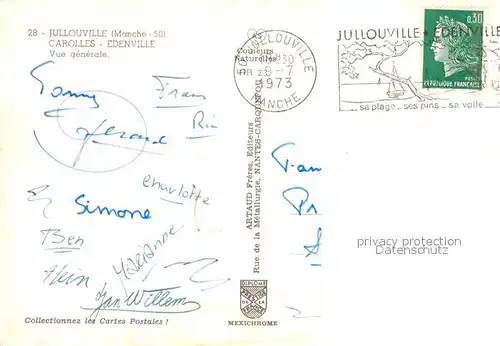 28 - JULLOUVILLE (Manche - 50)
CAROLLES - EDENVILLE
Vue générale.
Couleurs
Naturelles
JULLOUVILLE
9-7
1973
MANCHE
JULLOUVILLE - EDENVILLE
... sa plage... ses pins... sa voile...
0,30
POSTES
REPUBLIQUE FRANÇAISE
Frans
Gerard
Charlotte
Simone
Ben
Marianne
Hein
Jan Willem
ARTAUD Frères, Editeurs
Rue de la Métallurgie, NANTES-CARQUEFOU
Fam
Pr
privacy protection
Datenschutz
DIPLOME
MEXICHROME
Collectionnez les Cartes Postales !